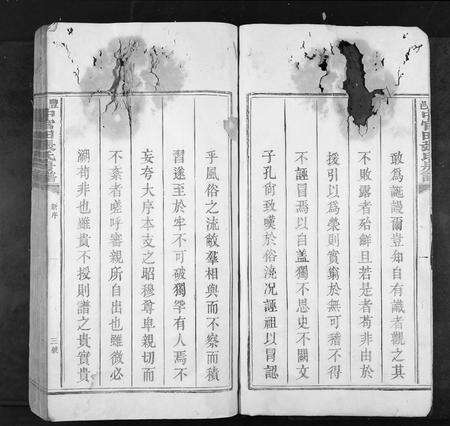 敢為誕謾爾豈知自有識者觀之其
不敗露者殆鮮且若是者苟非由於
援引以為榮則實窮於無可稽不得
不誣冒焉以自蓋獨不思史不闕文
子孔尚致嘆於俗澆況誣祖以冒認
乎風俗之流敝羣相與而不察而積
習遂至於牢不可破獨罕有人焉不
妄夸大序本支之昭穆尊卑親切而
不紊者嗟呼審親所自出也雖微必
溯苟非也雖貴不援則譜之貴實貴
新序
三號